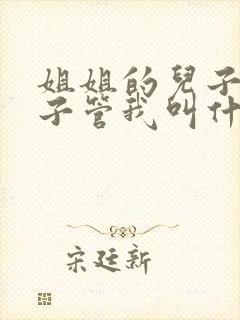 姐姐的兒子
子管我叫什
宋廷新